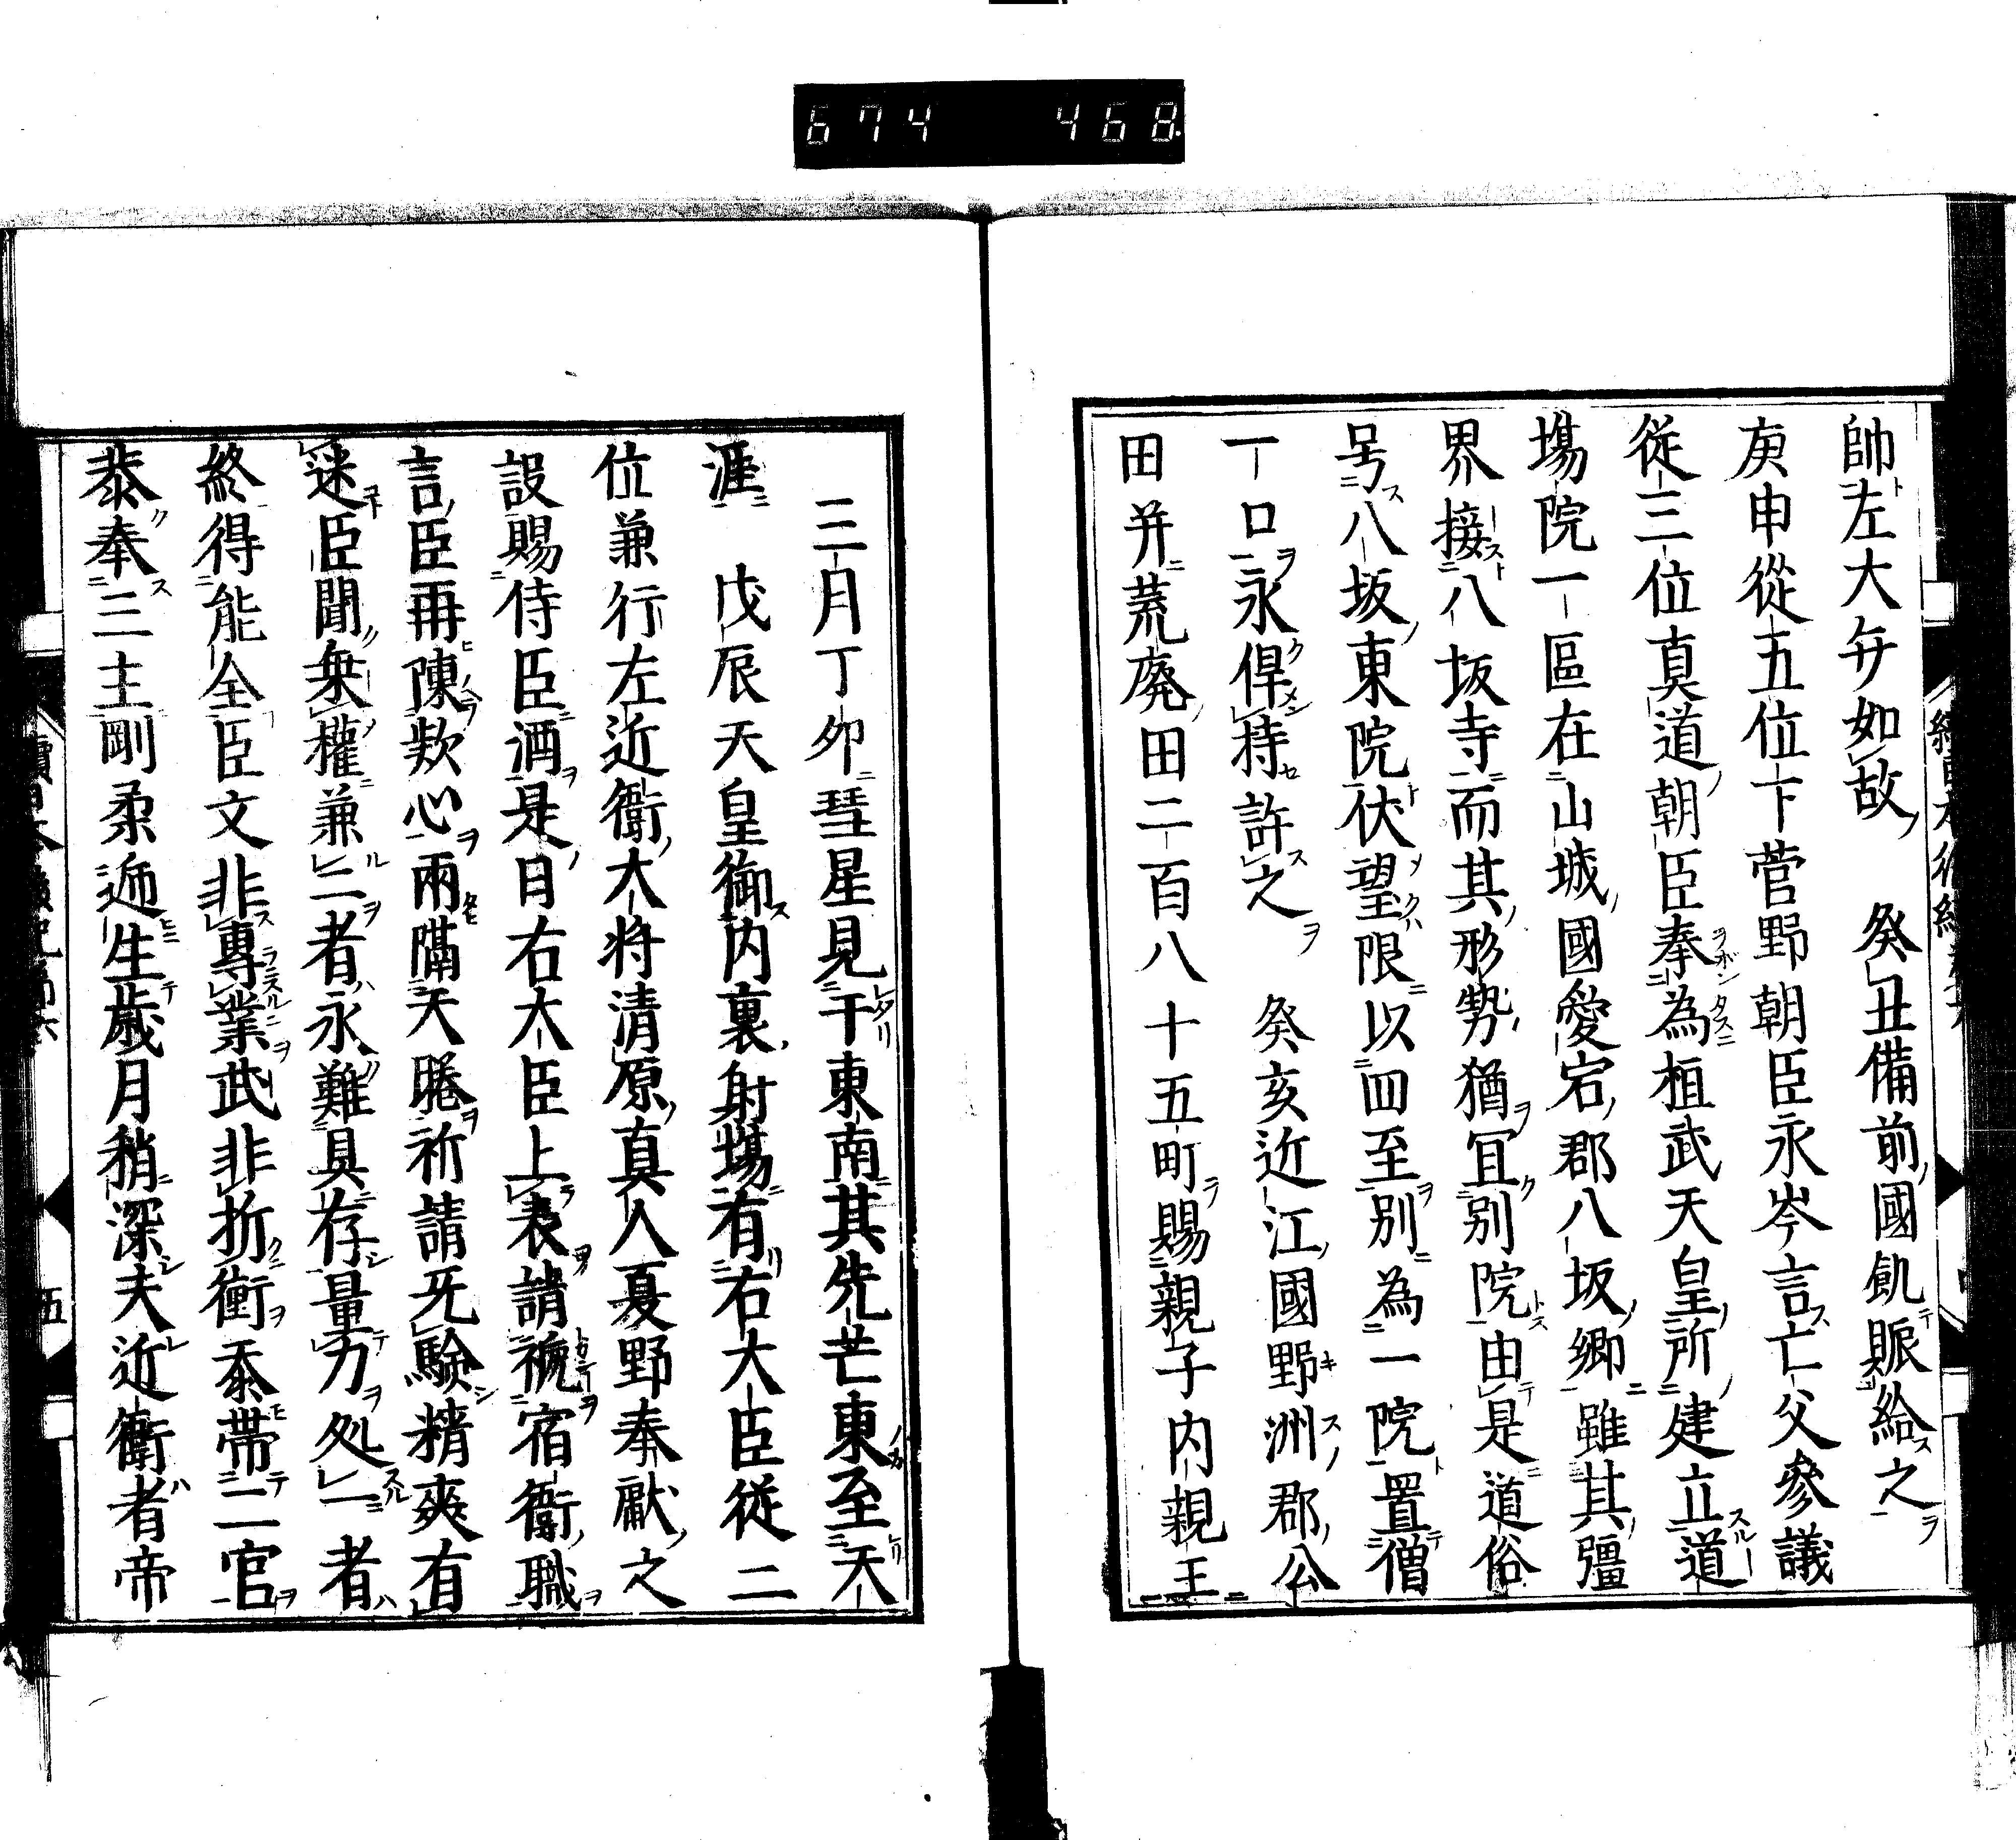 674 468
帥左大弁如故 癸丑備前國飢賑給之
庚申從五位下菅野朝臣永岑言亡父參議
從三位真道朝臣奉為桓武天皇所建立道
塲院一區在山城國愛宕郡八坂郷雖其彊
界接八坂寺而其形勢猶冝別院由是道俗
号八坂東院伏望限以四至別為一院置僧
一口永俾持許之 癸亥近江國野洲郡公
田并荒廃田二百八十五町賜親子内親王
三月丁卯彗星見于東南其先芒東至天
涯 戊辰天皇御内裏射塲有右大臣從二
位兼行左近衛大将清原真人夏野奉獻之
設賜侍臣酒是日右大臣上表請褫宿衛職
言臣再陳欵心兩隔天睠祈請旡驗精爽有
迷臣聞無權兼二者永難具存量力処一者
終得能全臣文非專業武非折衝忝帶二官
忝奉三主剛柔遞生歳月稍深夫近衛者帝
五